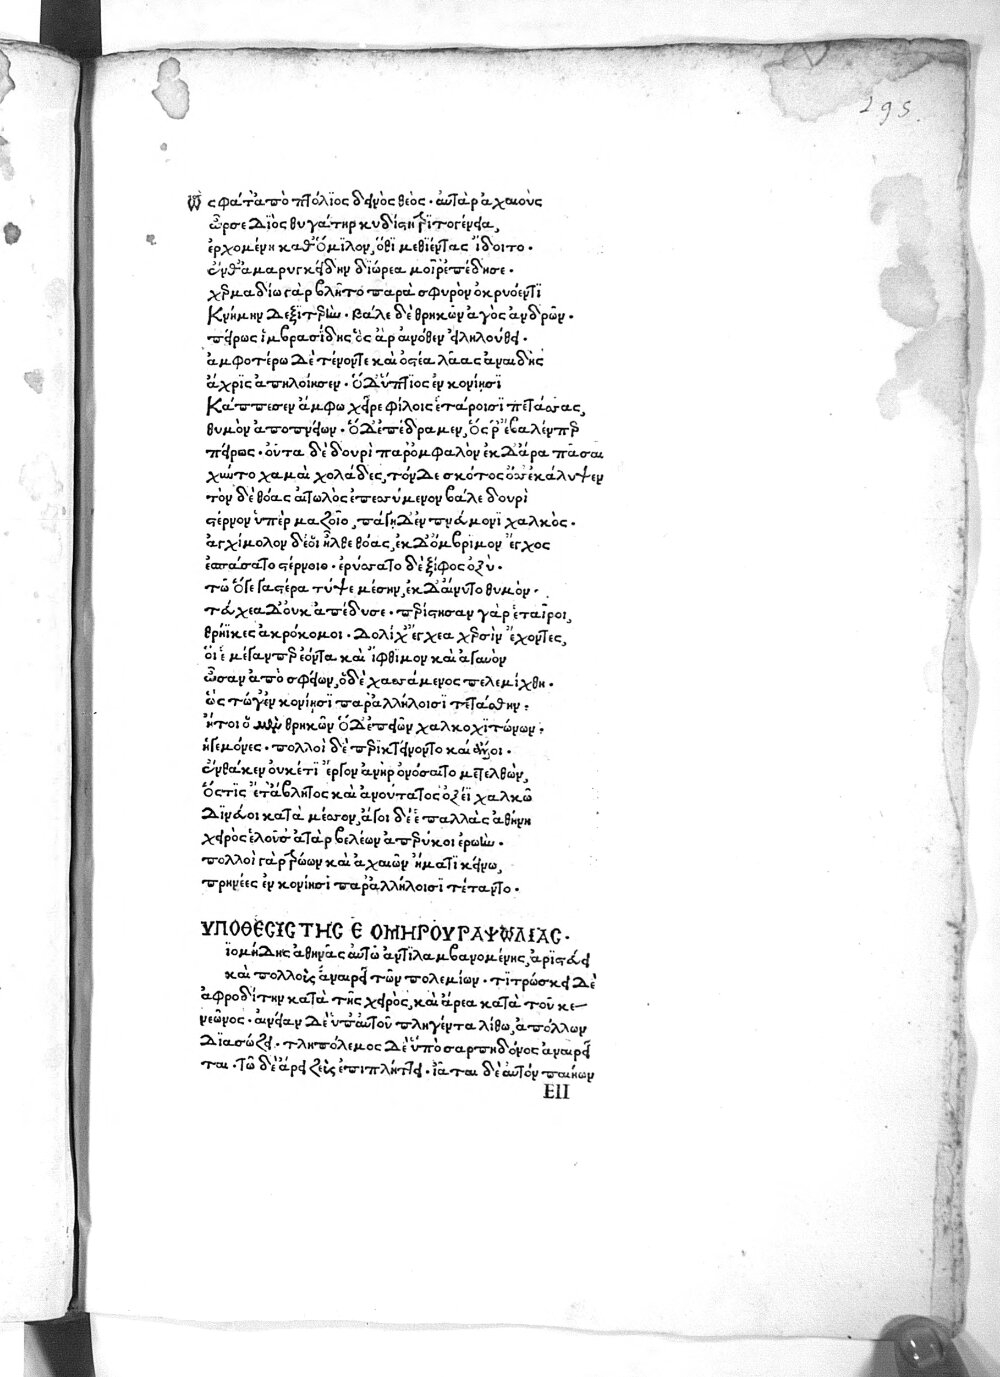 295.
Ὣς φάτ' ἀπὸ πτόλιος δεινὸς θεός · αὐτὰρ ἀχαιοὺς
ὦρσε Διὸς θυγάτηρ κυδίστη τριτογένεια,
ἐρχομένη καθ' ὅμιλον, ὅθι μεθιέντας ἴδοιτο ·
ἔνθ' ἀμαρυγκείδην διώρεα μοῖρ' ἐπέδησε ·
χερμαδίω γὰρ βλῆτο παρὰ σφυρὸν ὀκρυόεντι
Κνήμην Δεξιτερὴν · βάλε δὲ θρηκῶν ἀγὸς ἀνδρῶν ·
πείρως ἰμβρασίδης ὃς ἀρ αἰνόθεν εἰληλούθει ·
ἀμφοτέρω Δὲ τένοντε καὶ ὀστέα λᾶας ἀναιδὴς
ἄχρις ἀπηλοίησεν · ὁ δ' ὕπτιος ἐν κονίησι
Κάππεσεν ἄμφω χεῖρε φίλοις ἑτάροισι πετάσσας,
θυμὸν ἀποπνείων · ὁ Δ' ἐπέδραμεν, ὅς ῥ' ἔβαλέν περ
πείρως · οὖτα δὲ δουρὶ παρ' ὀμφαλὸν ἐκ Δ' ἄρα πᾶσαι
χύντο χαμαὶ χολάδες, τὸν Δε σκότος ὄσσ' ἐκάλυψεν
τὸν δὲ θόας αἰτωλὸς ἐπεσσύμενον βάλε δουρὶ
στέρνον ὑπὲρ μαζοῖο, πάγη Δ' ἐν πνεύμονι χαλκός ·
ἀγχίμολον δέ οἱ ἦλθε θόας, ἐκ Δ' ὄμβριμον ἔγχος
ἐσπάσατο στέρνοιο · ἐρύσσατο δὲ ξίφος ὀξὺ ·
τῶ ὅγε γαστέρα τύψε μέσην, ἐκ Δ' αἴνυτο θυμὸν ·
τεύχεα Δ' οὐκ ἀπέδυσε · περίστησαν γὰρ ἑταῖροι,
θρήϊκες ἀκρόκομοι · Δολίχ' ἔγχεα χερσὶν ἔχοντες,
οἵ ἑ μέγαν περ ἐόντα καὶ ἴφθιμον καὶ ἀγαυὸν
ὦσαν ἀπὸ σφείων, ὁ δὲ χασσάμενος πελεμίχθη ·
ὣς τώγ' ἐν κονίησι παρ' ἀλλήλοισι τετάσθην ·
ἤτοι ὁ μὲν θρηκῶν ὁ Δ' ἐπειῶν χαλκοχιτώνων ·
ἡγεμόνες · πολλοὶ δὲ περικτείνοντο καὶ ἄλλοι ·
ἔνθα κεν οὐκέτι ἔργον ἀνὴρ ὀνόσαιτο μετελθὼν,
ὅστις ἔτ' ἄβλητος καὶ ἀνούτατος ὀξέϊ χαλκῶ
Δινεύοι κατὰ μέσσον, ἄγοι δέ ἑ παλλὰς ἀθήνη
χειρὸς ἑλοῦσ' ἀτὰρ βελέων ἀπερύκοι ἐρωὴν ·
πολλοὶ γὰρ τρώων καὶ ἀχαιῶν ἤματι κείνω,
πρηνέες ἐν κονίησι παρ' ἀλλήλοισι τέταντο ·
ΥΠΟΘΕCΙC ΤΗC Ε ΟΜΗΡΟΥ ΡΑΨΩΔΙΑC ·
ϊομήδης ἀθηνᾶς αὐτῶ ἀντιλαμβανομένης, ἀριστεύει
καὶ πολλοὺς ἀναιρεῖ τῶν πολεμίων · τιτρώσκει Δὲ
ἀφροδίτην κατὰ τῆς χειρὸς, καὶ ἄρεα κατὰ τοῦ κε-
νεῶνος · αἰνείαν Δὲ ὑπ' αὐτοῦ πληγέντα λίθω, ἀπόλλων
Διασώζει · τληπόλεμος Δὲ ὑπὸ σαρπηδόνος ἀναιρεῖ
ται · τῶ δὲ ἄρει ζεὺς ἐπιπλήττει · ἰᾶται δὲ αὐτὸν παιήων
EII